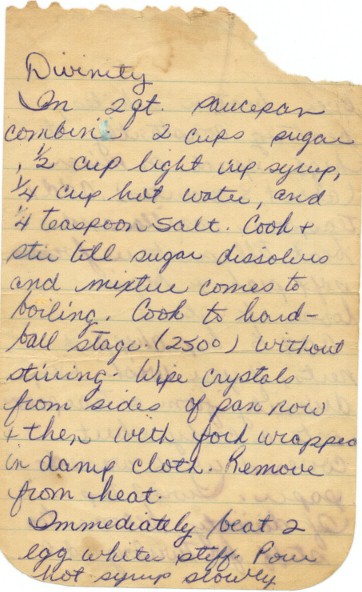 Divinity
In 2qt. saucepan
combine 2 cups sugar
, 1/2 cup light syrup,
1/4 cup hot water, and
1/4 teaspoon salt. Cook +
stir till sugar dissolves
and mixture comes to
boiling. Cook to hard-
ball stage. (250°) without
stirring. Wipe crystals
from sides of pan now
+ then with fork wrapped
in damp cloth. Remove
from heat.
Immediately beat 2
egg whites stiff. Pour
hot syrup slowly